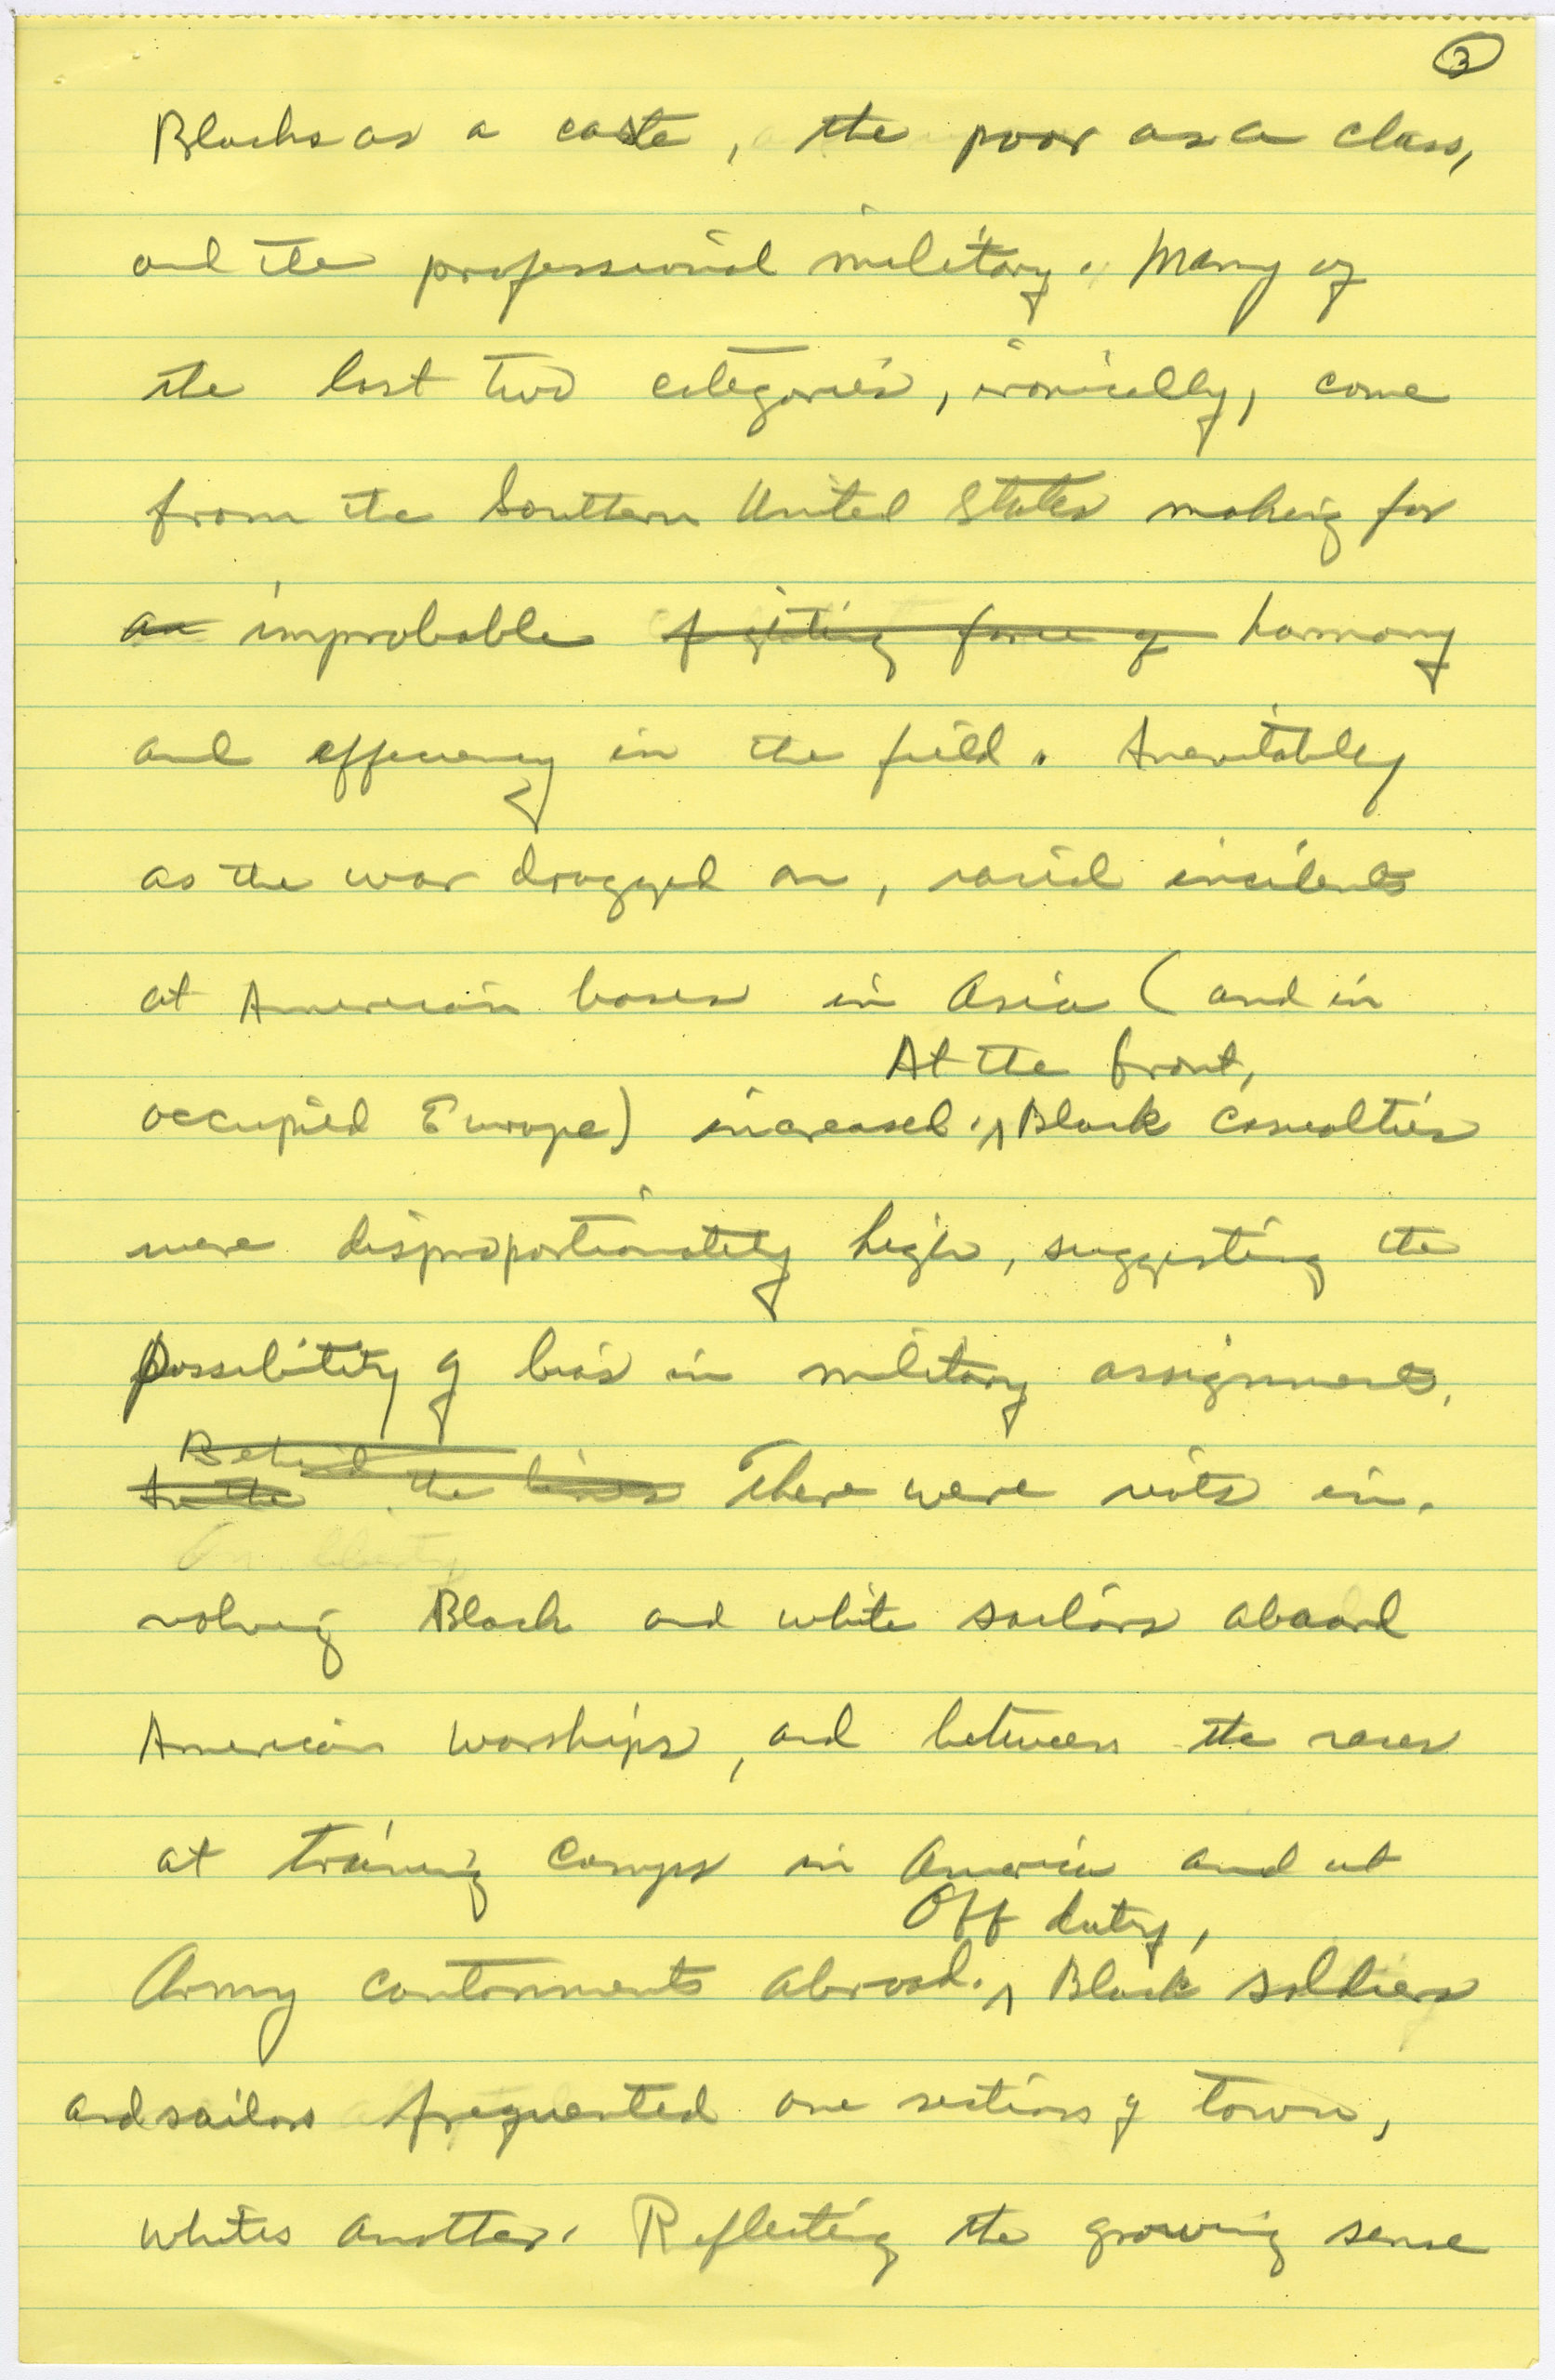 3
Blacks as a caste, the poor as a class,
and the professional military. Many of
the last two categories, ironically, come
from the Southern United States making for
an improbable fighting force of harmony
and efficency in the field. Inevitably
as the war dragged on, racial incidents
at American bases in Asia (and in
At the front,
occupied Europe) increased. ^ Black casualties
were disproportionately high, suggesting the
possibility of bias in military assignments.
Behind the lines
In the There were riots in-
On liberty
volving Black and white sailors aboard
American warships, and between the races
at training camps in America and at
Off duty,
Army cantonments abroad. ^ Black soldiers
and sailors frequented one section of town,
whites another. Reflecting the growing sense